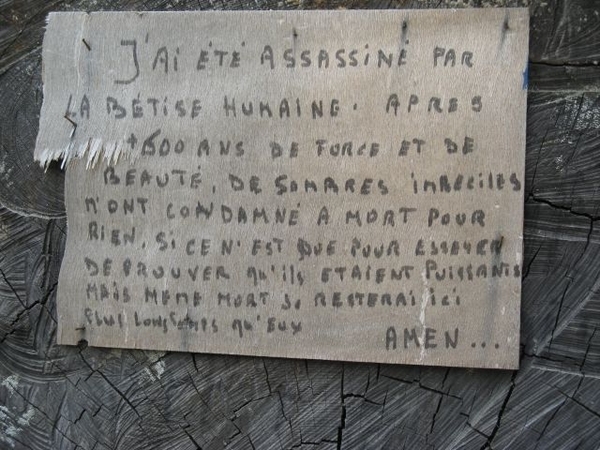 J'AI ÉTÉ ASSASSINÉ PAR
LA BÉTISE HUMAINE. APRES
+500 ANS DE FORCE ET DE
BEAUTÉ, DE SOMBRES IMBECILES
M'ONT CONDAMNÉ A MORT POUR
RIEN, SI CE N'EST QUE POUR ESSAYER
DE PROUVER QU'ILS ETAIENT PUISSANTS
MAIS MEME MORT JE RESTERAI ICI
PLUS LONGTEMPS QU'EUX
AMEN...